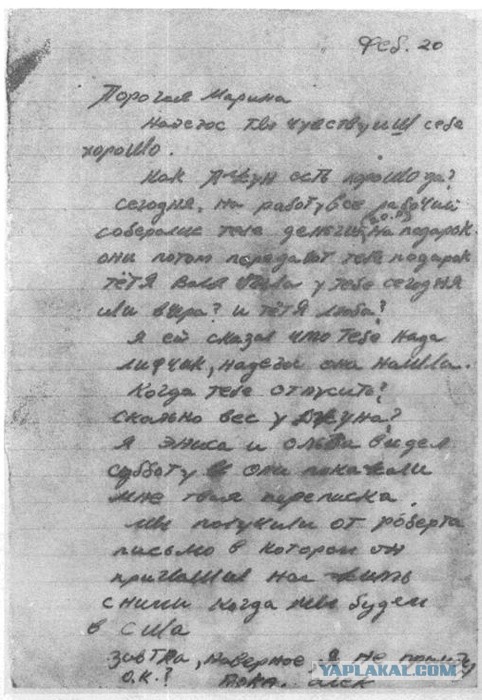 Феб. 20
Порогая Марина
Надеюс ты чувствуиш себя
хорошо.
Как Джун есть хорошо да?
сегодня, на работу все рабочий
собералис тебе деньги на подарок.
они потом передават тебе подарок
тётя Валя была у тебе сегодня
или вчра? и тётя люба?
Я ей сказал что тебе нада
лифчик, надеюс она нашла.
Когда тебе отпусить?
сколько вес у Джуна?
я Эниса и Ольги видел
субботу и они покажали
мне твоя переписка
мы получили от роберта
письмо в котором он
пригласил нас жить
с ними когда мы будем
в США
завтра, наверное я не приыду,
О.К.? пока. алек
YAPLAKAL.COM